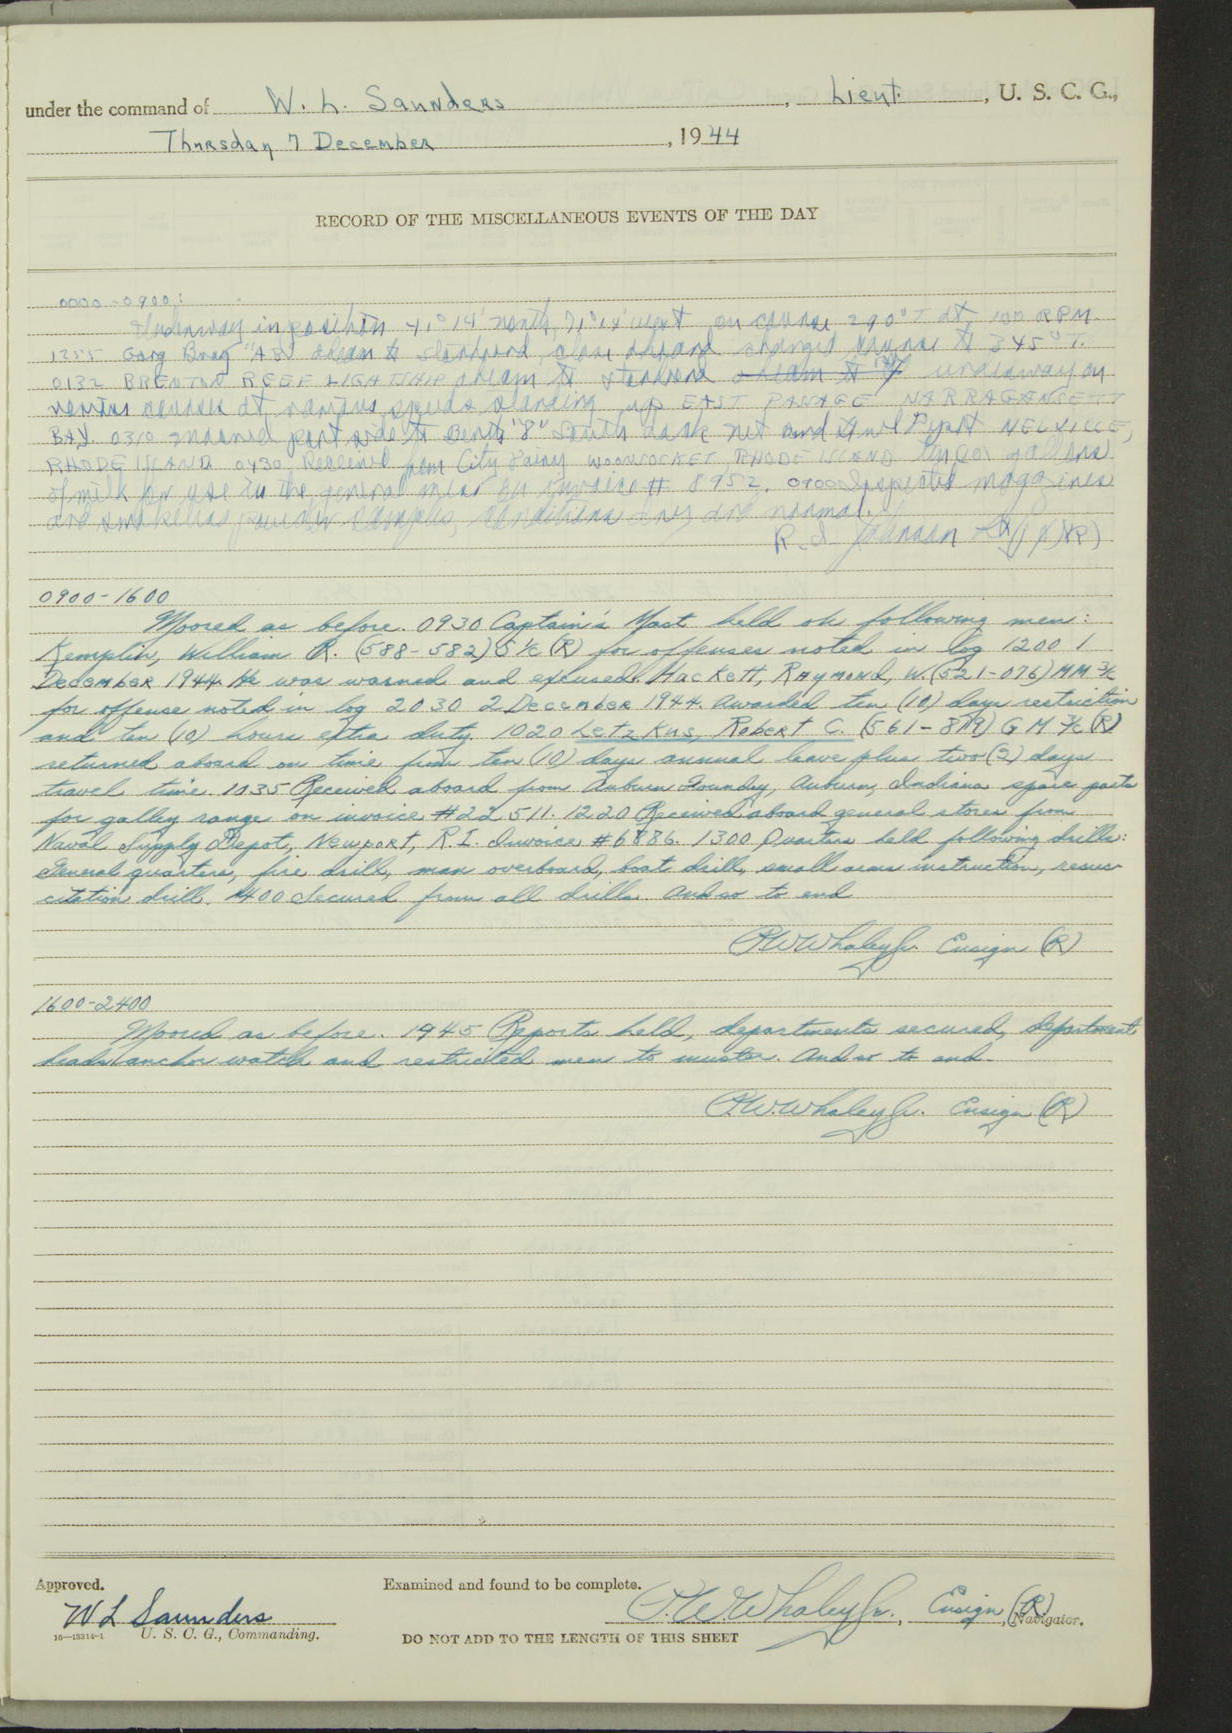 under the command of W. L. Saunders, Lieut., U. S. C. G.,
Thursday 7 December, 1944
RECORD OF THE MISCELLANEOUS EVENTS OF THE DAY
0000-0900:
Underway in position 41°14' north, 71°14' west on course 290°T at 100 RPM.
Buoy "AB" abeam to starboard, close aboard changed course to 345°T.
0132 BRENTON REEF LIGHTSHIP abeam to starboard abeam to underway on
various courses at various speeds standing up EAST PASSAGE NARRAGANSETT
BAY. 0310 moored port side to Berth "8" South dock Net and Fuel Depot MELVILLE,
RHODE ISLAND 0430 Received from City Dairy WOONSOCKET, RHODE ISLAND gallons
of milk for use in the general mess on invoice # 8952. 0900 Inspected magazines
and smokeless powder samples, conditions dry and normal.
R. I. Johnson (R)
0900-1600
Moored as before. 0930 Captain's Mast held on following men:
Kemplin, William R. (588-582) S 1/c (R) for offenses noted in log 1200 1
December 1944. He was warned and excused. Hackett, Raymond, W. (521-076) MM 3/c
for offense noted in log 2030 2 December 1944. Awarded ten (10) days restriction
and ten (10) hours extra duty. 1020 Letzkus, Robert C. GM 3/c (R)
returned aboard on time from ten (10) days annual leave plus two (2) days
travel time. 1035 Received aboard from Auburn Foundry, Auburn, Indiana spare parts
for galley range on invoice #22 511. 1220 Received aboard general stores from
Naval Supply Depot, Newport, R.I. Invoice #6886. 1300 Quarters held following drills:
General quarters, fire drill, man overboard, boat drill, small arms instruction, resus-
citation drill. 1400 Secured from all drills. And so to end
P.W. Whaley Jr. Ensign (R)
1600-2400
Moored as before. 1945 Reports held, departments secured, department
heads anchor watch and restricted men to muster. And so to end.
P.W. Whaley Jr. Ensign (R)
Approved. Examined and found to be complete.
W L Saunders P.W. Whaley Jr., Ensign (R), Navigator.
16—13314-1 U. S. C. G., Commanding. DO NOT ADD TO THE LENGTH OF THIS SHEET